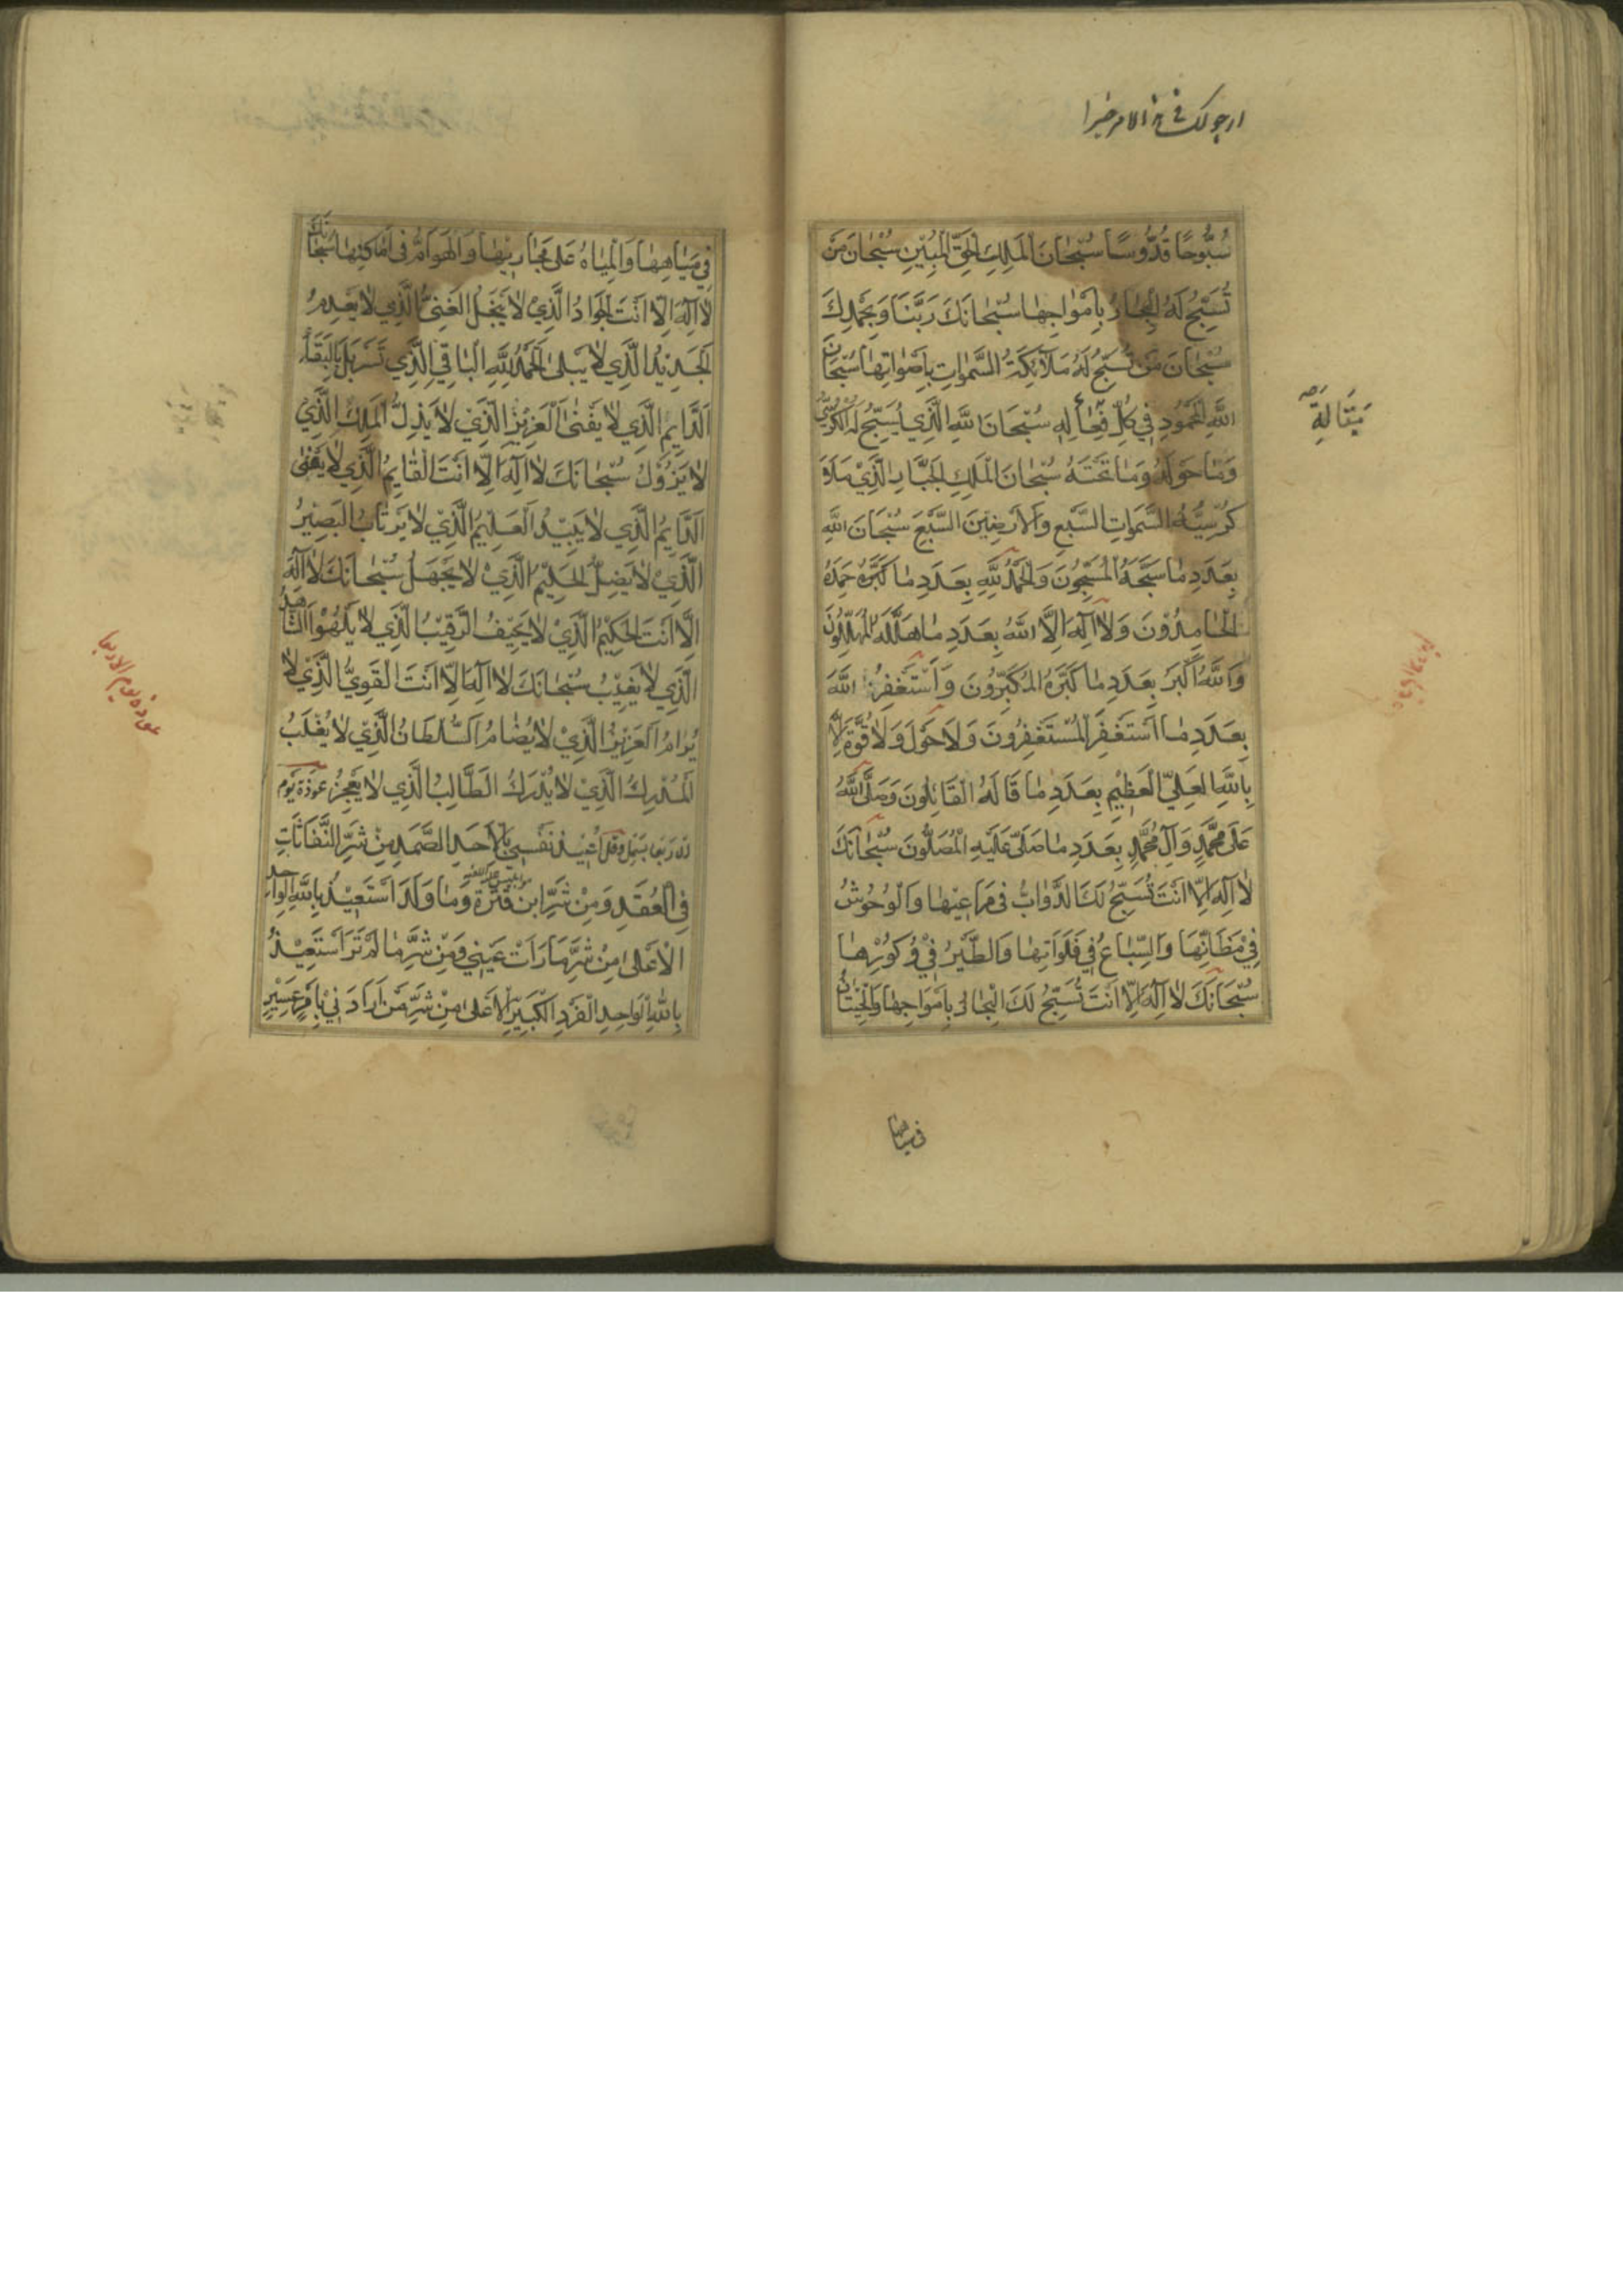 سُبُّوحًا قُدُّوسًا سُبْحَانَ الْمَلِكِ الْحَقِّ الْمُبِينِ سُبْحَانَ مَنْ
تُسَبِّحُ لَهُ الْبِحَارُ بِأَمْوَاجِهَا سُبْحَانَكَ رَبَّنَا وَبِحَمْدِكَ
سُبْحَانَ مَنْ تُسَبِّحُ لَهُ مَلَائِكَةُ السَّمٰوَاتِ بِأَصْوَاتِهَا سُبْحَانَ
اللهِ الْمَحْمُودِ فِي كُلِّ فِعَالِهِ سُبْحَانَ اللهِ الَّذِي يُسَبِّحُ لَهُ الْكُرْسِيُّ
وَمَا حَوْلَهُ وَمَا تَحْتَهُ سُبْحَانَ الْمَلِكِ الْجَبَّارِ الَّذِي مَلَأَ
كُرْسِيُّهُ السَّمَوَاتِ السَّبْعِ وَالْأَرَضِينَ السَّبْعَ سُبْحَانَ اللهِ
بِعَدَدِ مَا سَبَّحَهُ الْمُسَبِّحُونَ وَالْحَمْدُ لِلّٰهِ بِعَدَدِ مَا حَمِدَهُ
الْحَامِدُونَ وَلَا اِلٰهَ اِلَّا اللهُ بِعَدَدِ مَا هَلَّلَهُ الْمُهَلِّلُونَ
وَاللهُ أَكْبَرُ بِعَدَدِ مَا كَبَّرَهُ الْمُكَبِّرُونَ وَأَسْتَغْفِرُ اللهَ
بِعَدَدِ مَا اسْتَغْفَرَ الْمُسْتَغْفِرُونَ وَلَا حَوْلَ وَلَا قُوَّةَ اِلَّا
بِاللهِ الْعَلِيِّ الْعَظِيمِ بِعَدَدِ مَا قَالَهُ الْقَائِلُونَ وَصَلَّى اللهُ
عَلَى مُحَمَّدٍ وَآلِ مُحَمَّدٍ بِعَدَدِ مَا صَلَّى عَلَيْهِ الْمُصَلُّونَ سُبْحَانَكَ
لَا اِلٰهَ اِلَّا اَنْتَ تُسَبِّحُ لَكَ الدَّوَابُّ فِي مَرَاعِيهَا وَالْوُحُوشُ
فِي مَظَانِّهَا وَالسِّبَاعُ فِي فَلَوَاتِهَا وَالطَّيْرُ فِي وُكُورِهَا
سُبْحَانَكَ لَا اِلٰهَ اِلَّا اَنْتَ تُسَبِّحُ لَكَ الْبِحَارُ بِأَمْوَاجِهَا وَالْحِيتَانُ
فِي مِيَاهِهَا وَالْمِيَاهُ عَلَى مَجَارِيهَا وَالْهَوَامُّ فِي أَمَاكِنِهَا سُبْحَانَكَ
لَا اِلٰهَ اِلَّا اَنْتَ الْجَوَادُ الَّذِي لَا يَبْخَلُ الْغَنِيُّ الَّذِي لَا يَعْدِمُ
الْجَدِيدُ الَّذِي لَا يَبْلَى الْحَمْدُ لِلّٰهِ الْبَاقِي الَّذِي تَسَرْبَلَ بِالْبَقَاءِ
الدَّايِمِ الَّذِي لَا يَفْنَى الْعَزِيزِ الَّذِي لَا يَذِلُّ الْمَلِكِ الَّذِي
لَا يَزُولُ سُبْحَانَكَ لَا اِلٰهَ اِلَّا اَنْتَ الْقَايِمُ الَّذِي لَا يَفْنَى
الدَّايِمُ الَّذِي لَا يَبِيدُ الْعَلِيمُ الَّذِي لَا يَرْتَابُ الْبَصِيرُ
الَّذِي لَا يَضِلُّ الْحَلِيمُ الَّذِي لَا يَجْهَلُ سُبْحَانَكَ لَا اِلٰهَ
اِلَّا اَنْتَ الْحَكِيمُ الَّذِي لَا يَحِيفُ الرَّقِيبُ الَّذِي لَا يَلْهُو الشَّاهِدُ
الَّذِي لَا يَغِيبُ سُبْحَانَكَ لَا اِلٰهَ اِلَّا اَنْتَ الْقَوِيُّ الَّذِي لَا
يُرَامُ الْعَزِيزُ الَّذِي لَا يُضَامُ السُّلْطَانُ الَّذِي لَا يُغْلَبُ
الْمُدْرِكُ الَّذِي لَا يُدْرَكُ الطَّالِبُ الَّذِي لَا يَعْجِزُ عوذة يوم
أُعِيذُ نَفْسِي بِالْأَحَدِ الصَّمَدِ مِنْ شَرِّ النَّفَّاثَاتِ
فِي الْعُقَدِ وَمِنْ شَرِّ ابْنِ قِتْرَةَ وَمَا وَلَدَ اَسْتَعِيذُ بِاللهِ الْوَاحِدِ
الْأَعْلَى مِنْ شَرِّ مَا رَأَتْ عَيْنِي وَمِنْ شَرِّ مَا لَمْ تَرَ اَسْتَعِيذُ
بِاللهِ الْوَاحِدِ الْفَرْدِ الْكَبِيرِ الْأَعْلَى مِنْ شَرِّ مَنْ أَرَادَنِي بِأَمْرٍ عَسِيرٍ
عوذة يوم الاربعا